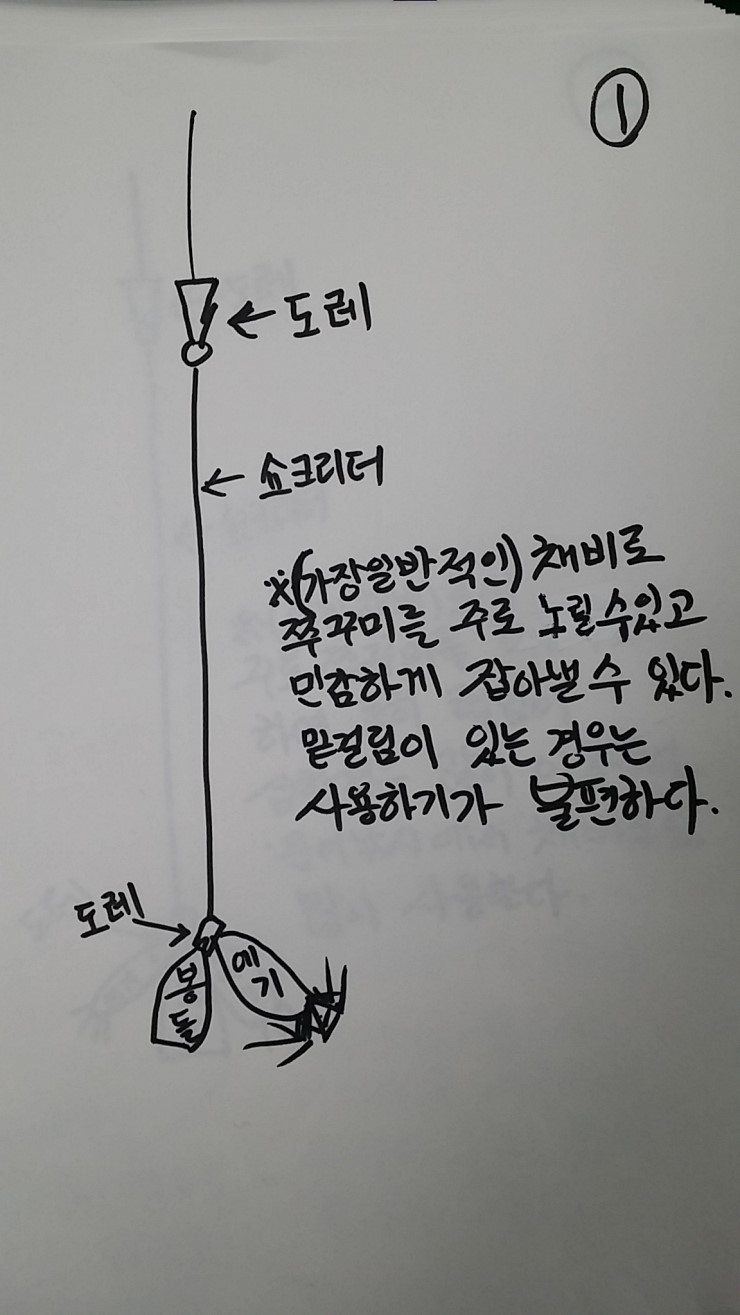 ①
도레
쇼크리더
※(가장일반적인) 채비로
쭈꾸미를 주로 노릴수있고
민감하게 잡아낼 수 있다.
밑걸림이 있는 경우는
사용하기가 불편하다.
도레
봉돌
에기